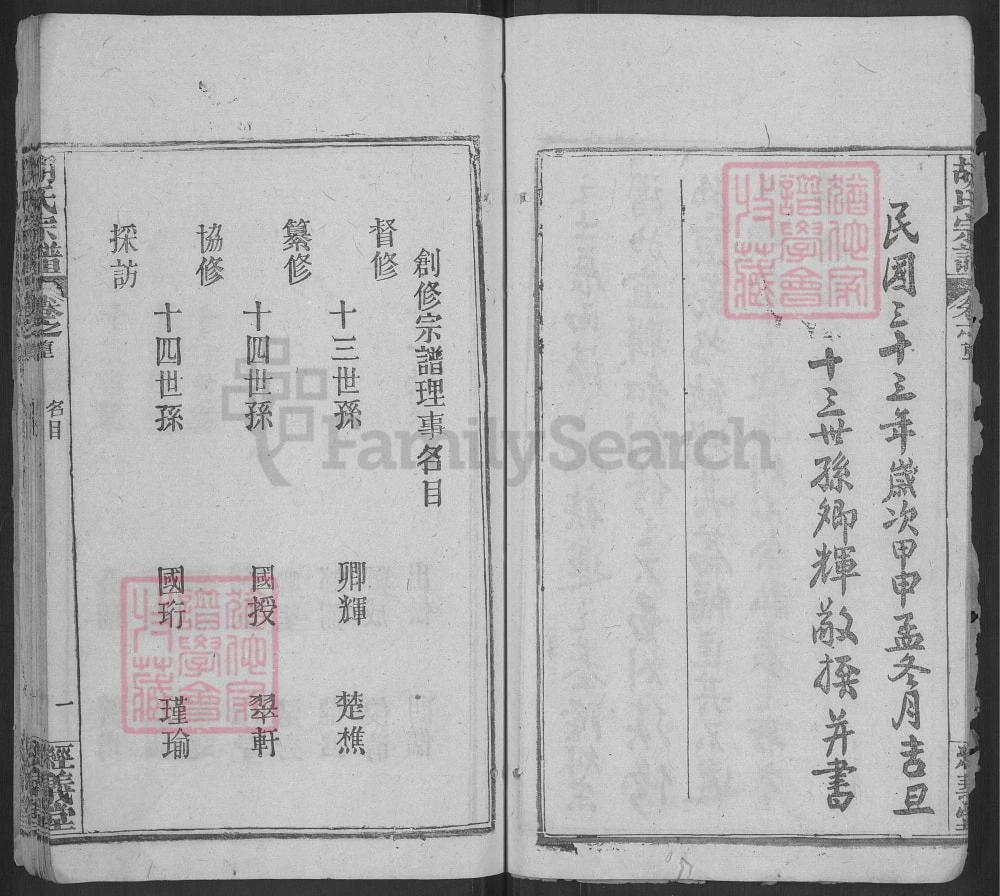 胡氏宗譜
民國三十三年歲次甲申孟冬月吉旦
十三世孫卿輝敬撰並書
創修宗譜理事名目
督修
十三世孫 卿輝 楚樵
纂修
十四世孫 國授 翠軒
協修
十四世孫 國珩 瑾瑜
採訪
胡氏宗譜 卷之首 名目 一 經義堂
FamilySearch
譜學會
特藏